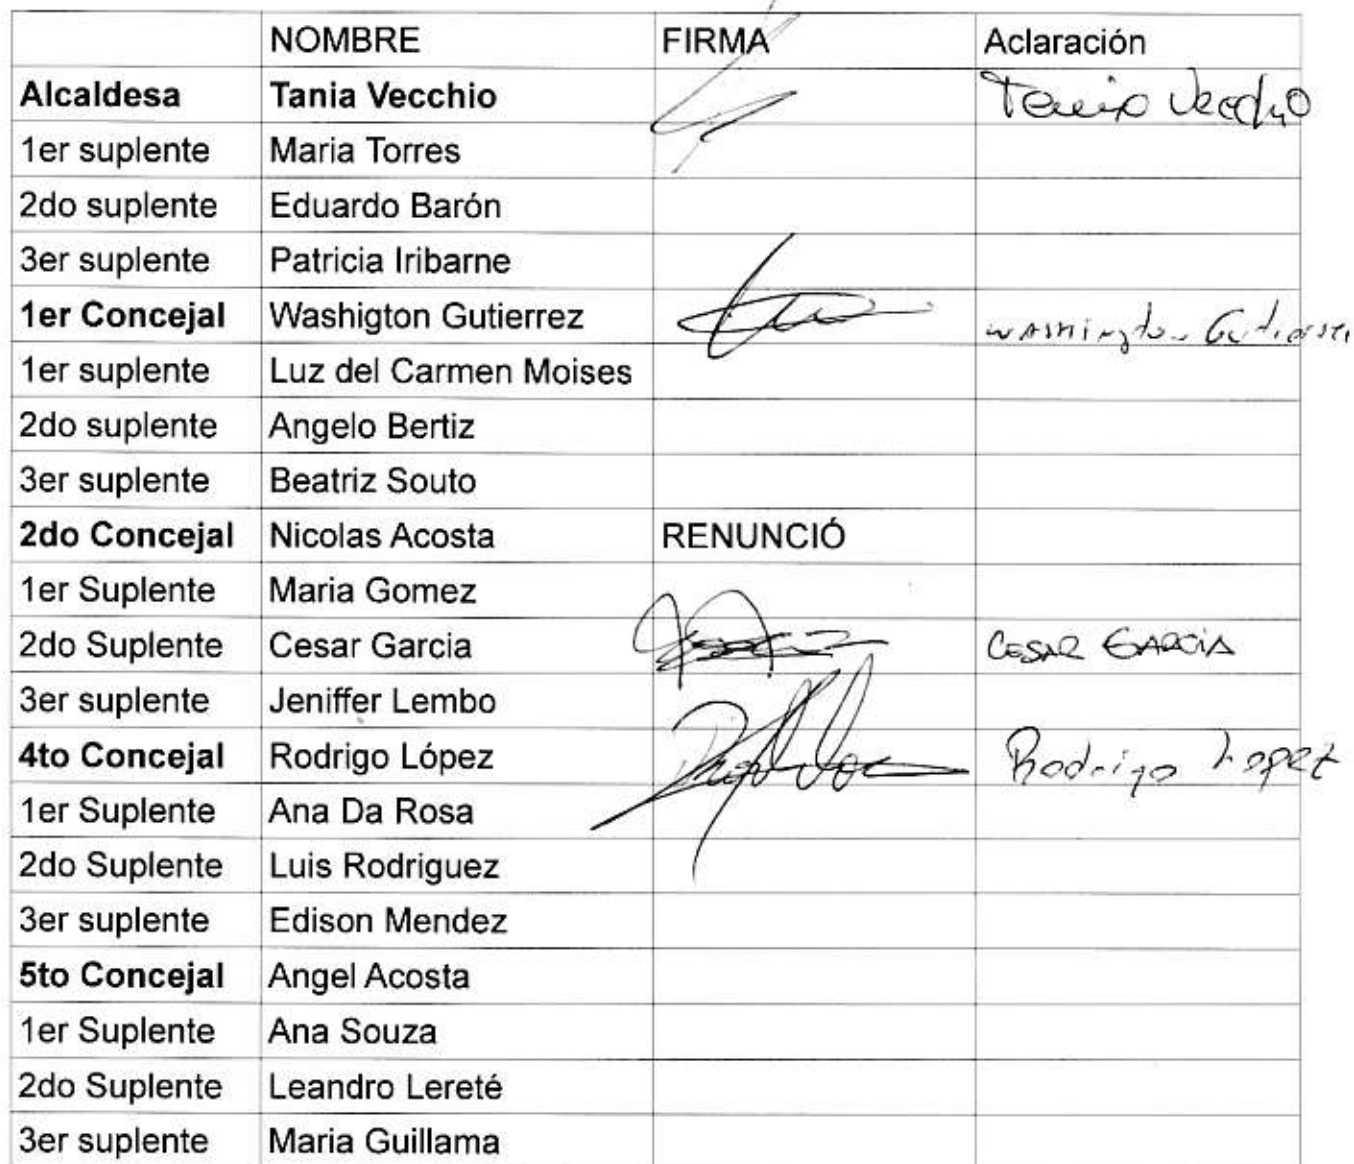 NOMBRE FIRMA Aclaración
Alcaldesa Tania Vecchio Tania Vecchio
1er suplente Maria Torres
2do suplente Eduardo Barón
3er suplente Patricia Iribarne
1er Concejal Washigton Gutierrez Washington Gutierrez
1er suplente Luz del Carmen Moises
2do suplente Angelo Bertiz
3er suplente Beatriz Souto
2do Concejal Nicolas Acosta RENUNCIÓ
1er Suplente Maria Gomez
2do Suplente Cesar Garcia CESAR GARCIA
3er suplente Jeniffer Lembo
4to Concejal Rodrigo López Rodrigo Lopez
1er Suplente Ana Da Rosa
2do Suplente Luis Rodriguez
3er suplente Edison Mendez
5to Concejal Angel Acosta
1er Suplente Ana Souza
2do Suplente Leandro Lereté
3er suplente Maria Guillama